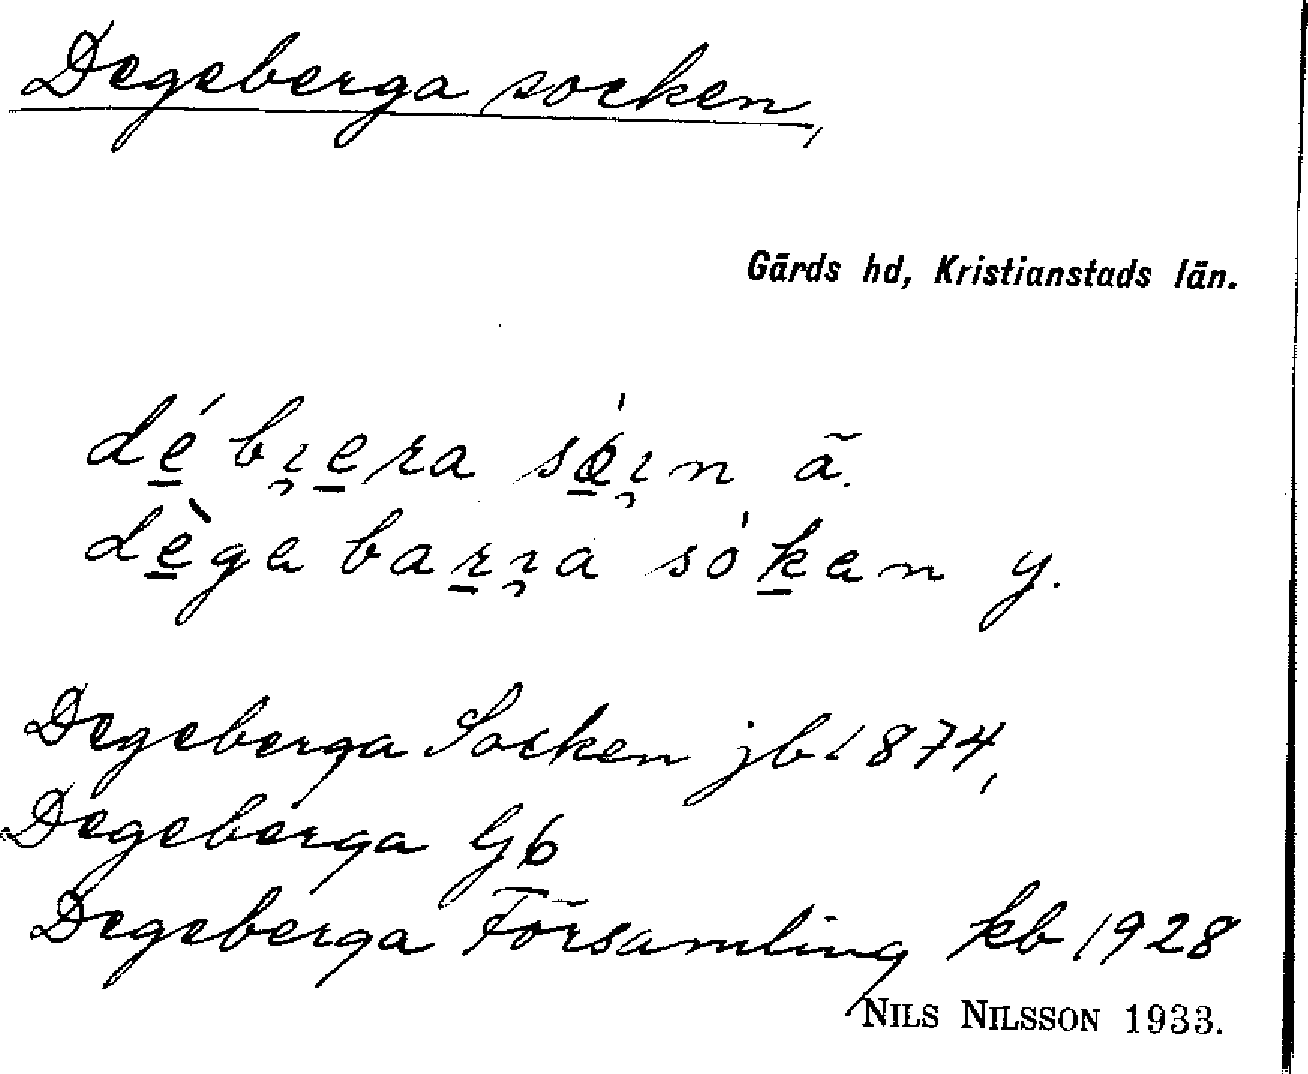 Degeberga socken,
Gärds hd, Kristianstads län.
dé̱ bı̡e̱ra sǿ̱ı̡n ã.
dè̱ga baṟı̡a só'ḵan y.
Degeberga Socken jb 1874,
Degeberga G6
Degeberga Församling kb 1928
NILS NILSSON 1933.